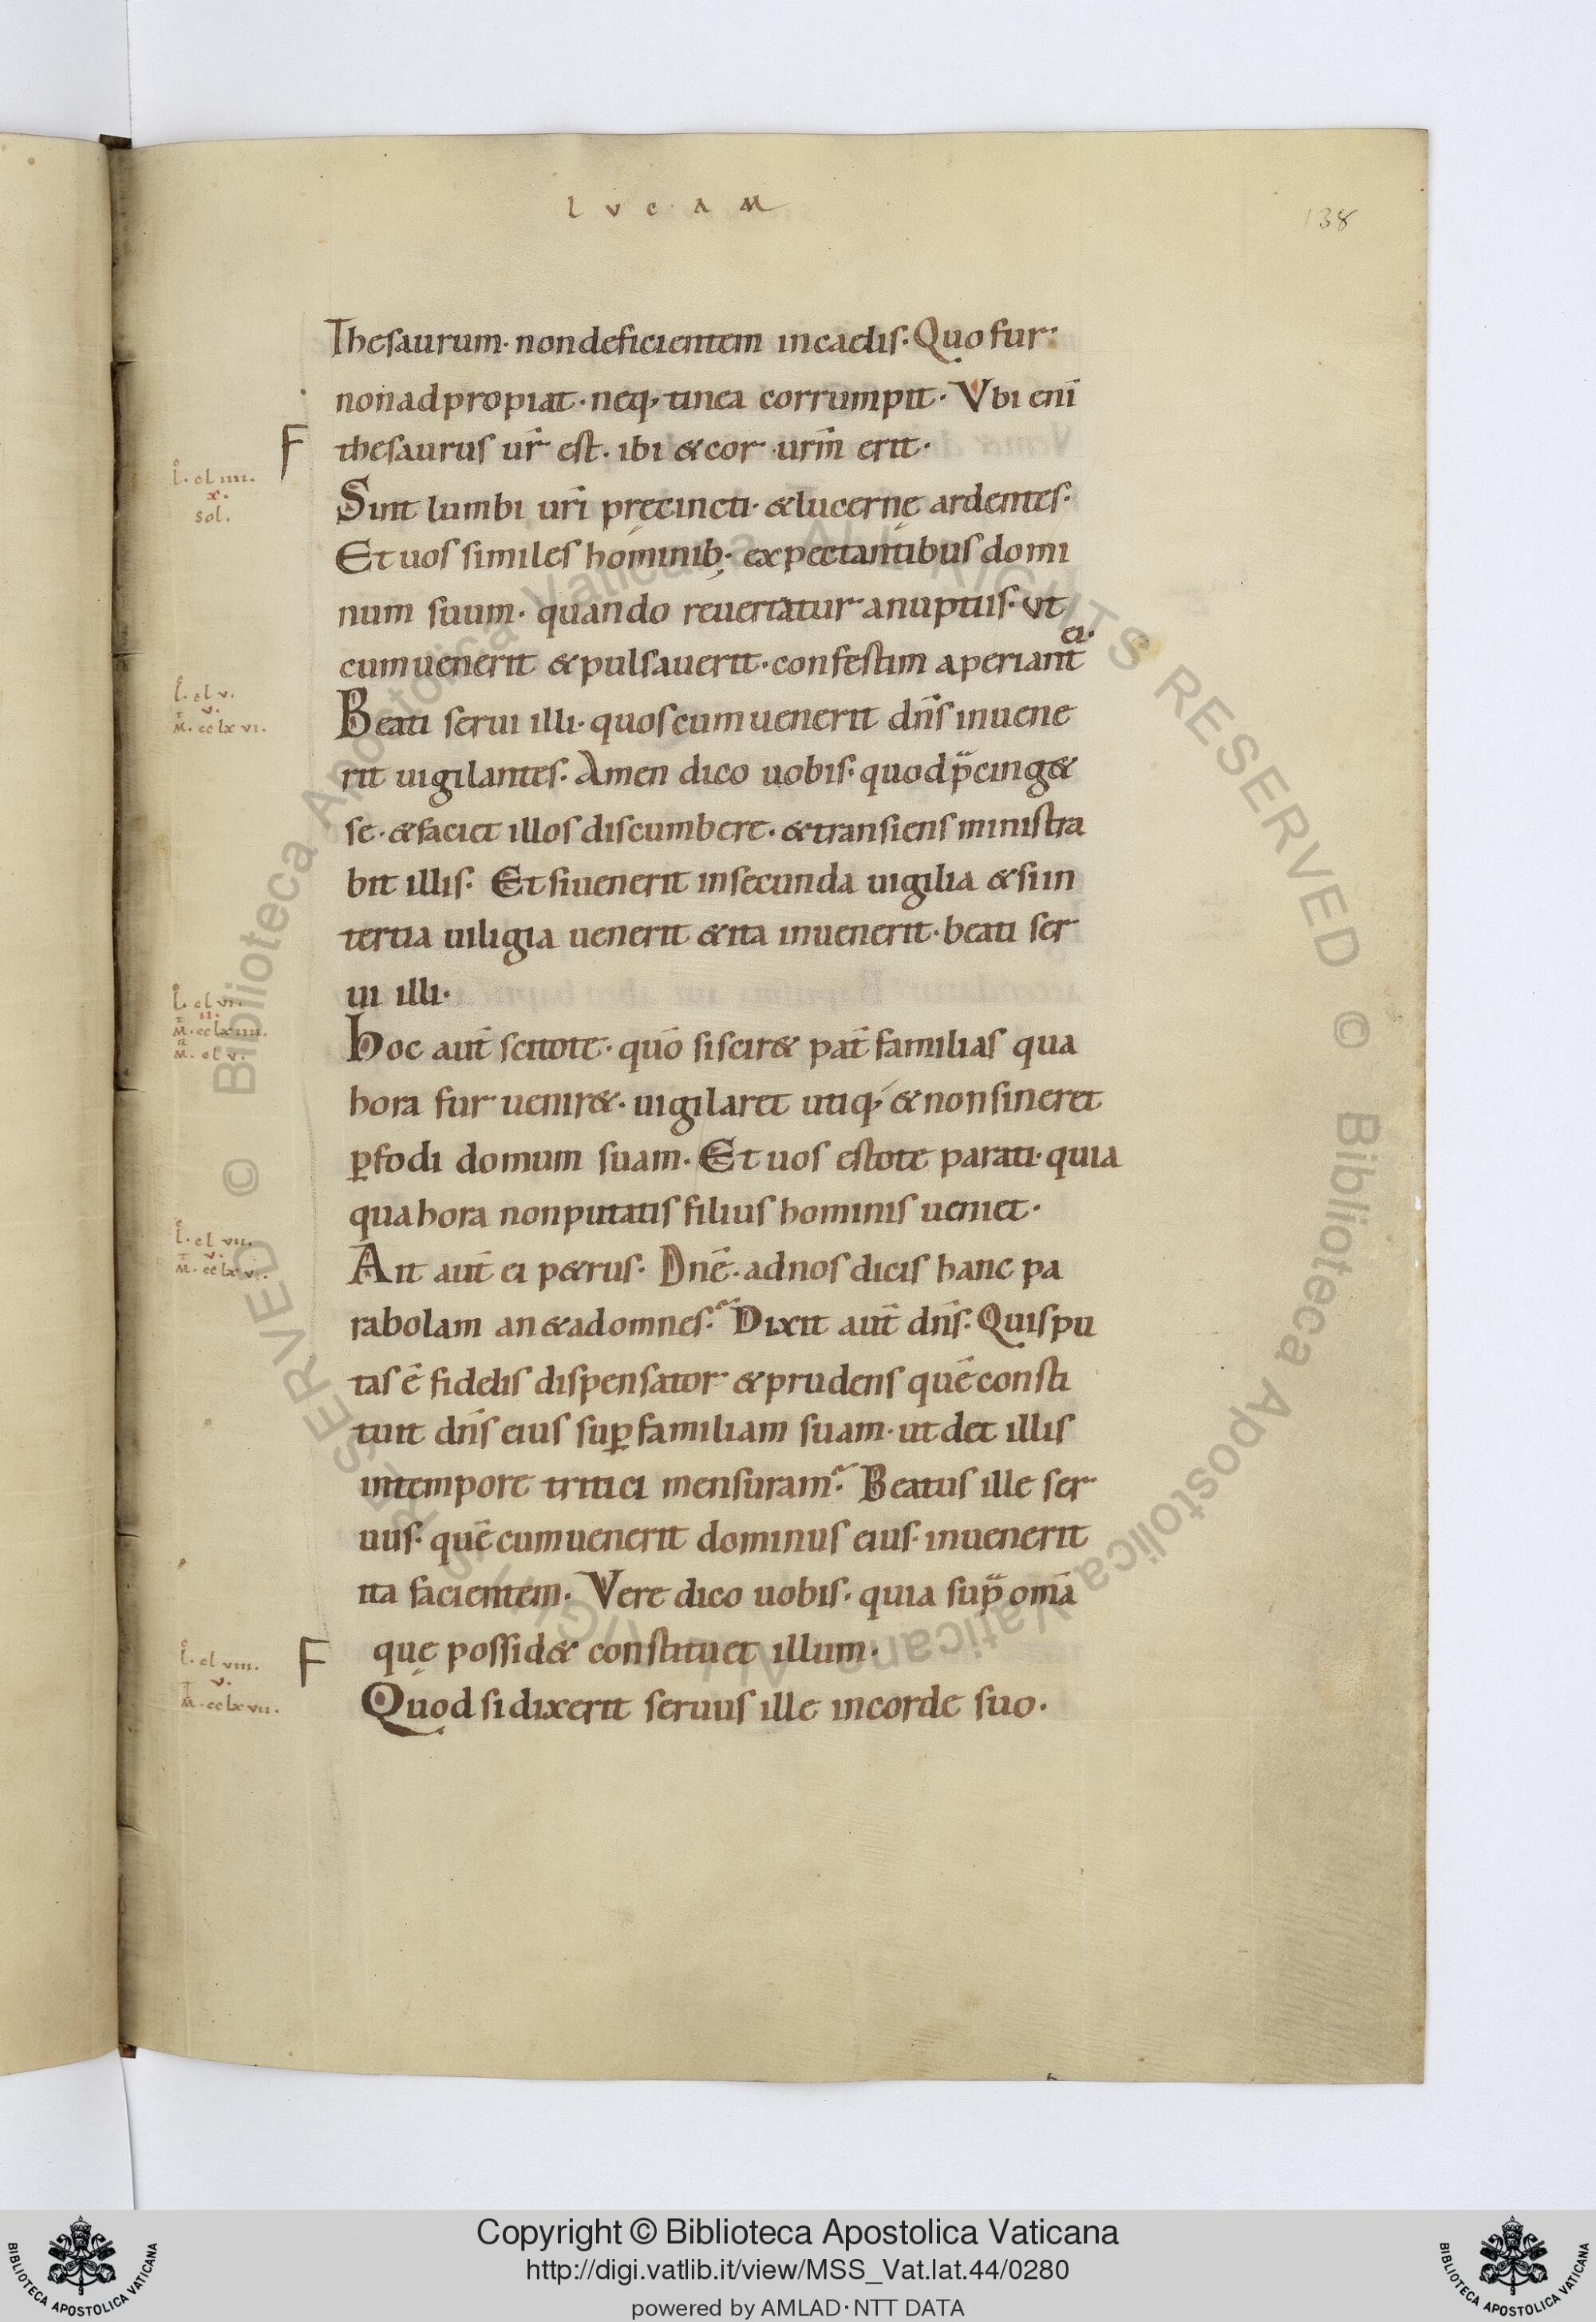 LVCAM
138
Thesaurum· non deficientem in caelis· Quo fur·
non adpropiat· neq; tinea corrumpit· Vbi eni̅
F
thesaurus ur̅ est· ibi & cor ur̅m erit·
L· cl IIII·
X·
sol·
Sint lumbi uri̅ precincti· & lucernę ardentes·
Et uos similes hominib; expectantibus domi
num suum· quando reuertatur a nuptiis· vt
cum uenerit & pulsauerit· confestim aperiant ei·
L· cl V·
V·
M· cclxVI·
Beati serui illi· quos cum uenerit dn̅s inuene
rit uigilantes· Amen dico uobis· quod p̅cing&
se· & faciet illos discumbere· & transiens ministra
bit illis· Et si uenerit in secunda uigilia & si in
tertia uiligia uenerit & ita inuenerit· beati ser
ui illi·
L· cl VI·
II·
M· cclxIIII·
M· cl V·
hoc aut̅ scitote· quo̅ si scir& pat̅ familias qua
hora fur uenir&· uigilaret utiq; & non sineret
p̱fodi domum suam· Et uos estote parati· quia
qua hora non putatis filius hominis ueniet·
L· cl VII·
V·
M· cclxV·
Ait aut̅ ei p&rus· Dne̅· ad nos dicis hanc pa
rabolam an & ad omnes· Dixit aut̅ dn̅s· Quis pu
tas e̅ fidelis dispensator & prudens que̅ consti
tuit dn̅s eius sup̱ familiam suam· ut det illis
in tempore tritici mensuram· Beatus ille ser
uus· que̅ cum uenerit dominus eius· inuenerit
ita facientem· Vere dico uobis· quia sup̅ om̅ia
F
quę possid& constituet illum·
L· cl VIII·
V·
M· cclxVII·
Quod si dixerit seruus ille in corde suo·
Copyright © Biblioteca Apostolica Vaticana
http://digi.vatlib.it/view/MSS_Vat.lat.44/0280
powered by AMLAD·NTT DATA
BIBLIOTECA APOSTOLICA VATICANA
BIBLIOTECA APOSTOLICA VATICANA